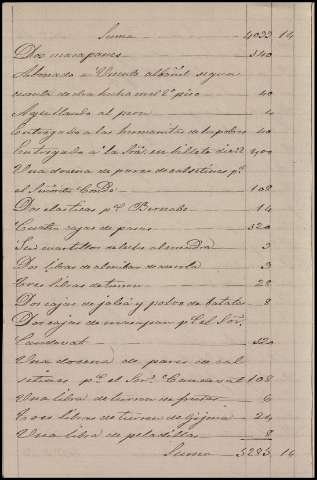 Suma 4033 14
Dos mazapanes 340
Abonado a Vicente albañil segun
cuenta de obra hecha en el 2º piso 40
Aguilando al peon 4
Entregado a las hermanitas de los pobres 40
Entregado a la Sra. en billete
Una docena de pares de calcetines pª
el Señorito Conde 108
Dos elasticas pª Bernabe 14
Cuatro cajas de pasas 320
Seis cuartillos de leche almendra 3
Dos libras de almibar 3
Tres libras de turron 28
Dos cajas de jalea y polvo de batata 8
Dos cajas de mazapan pª el Sor.
Candavat 320
Una docena de pares de cal
cetines pª el Sor. Candavat 108
Una libra de turron de frutas 6
Tres libras de turron de Gijona 24
Una libra de peladillas 8
Suma 5285 14